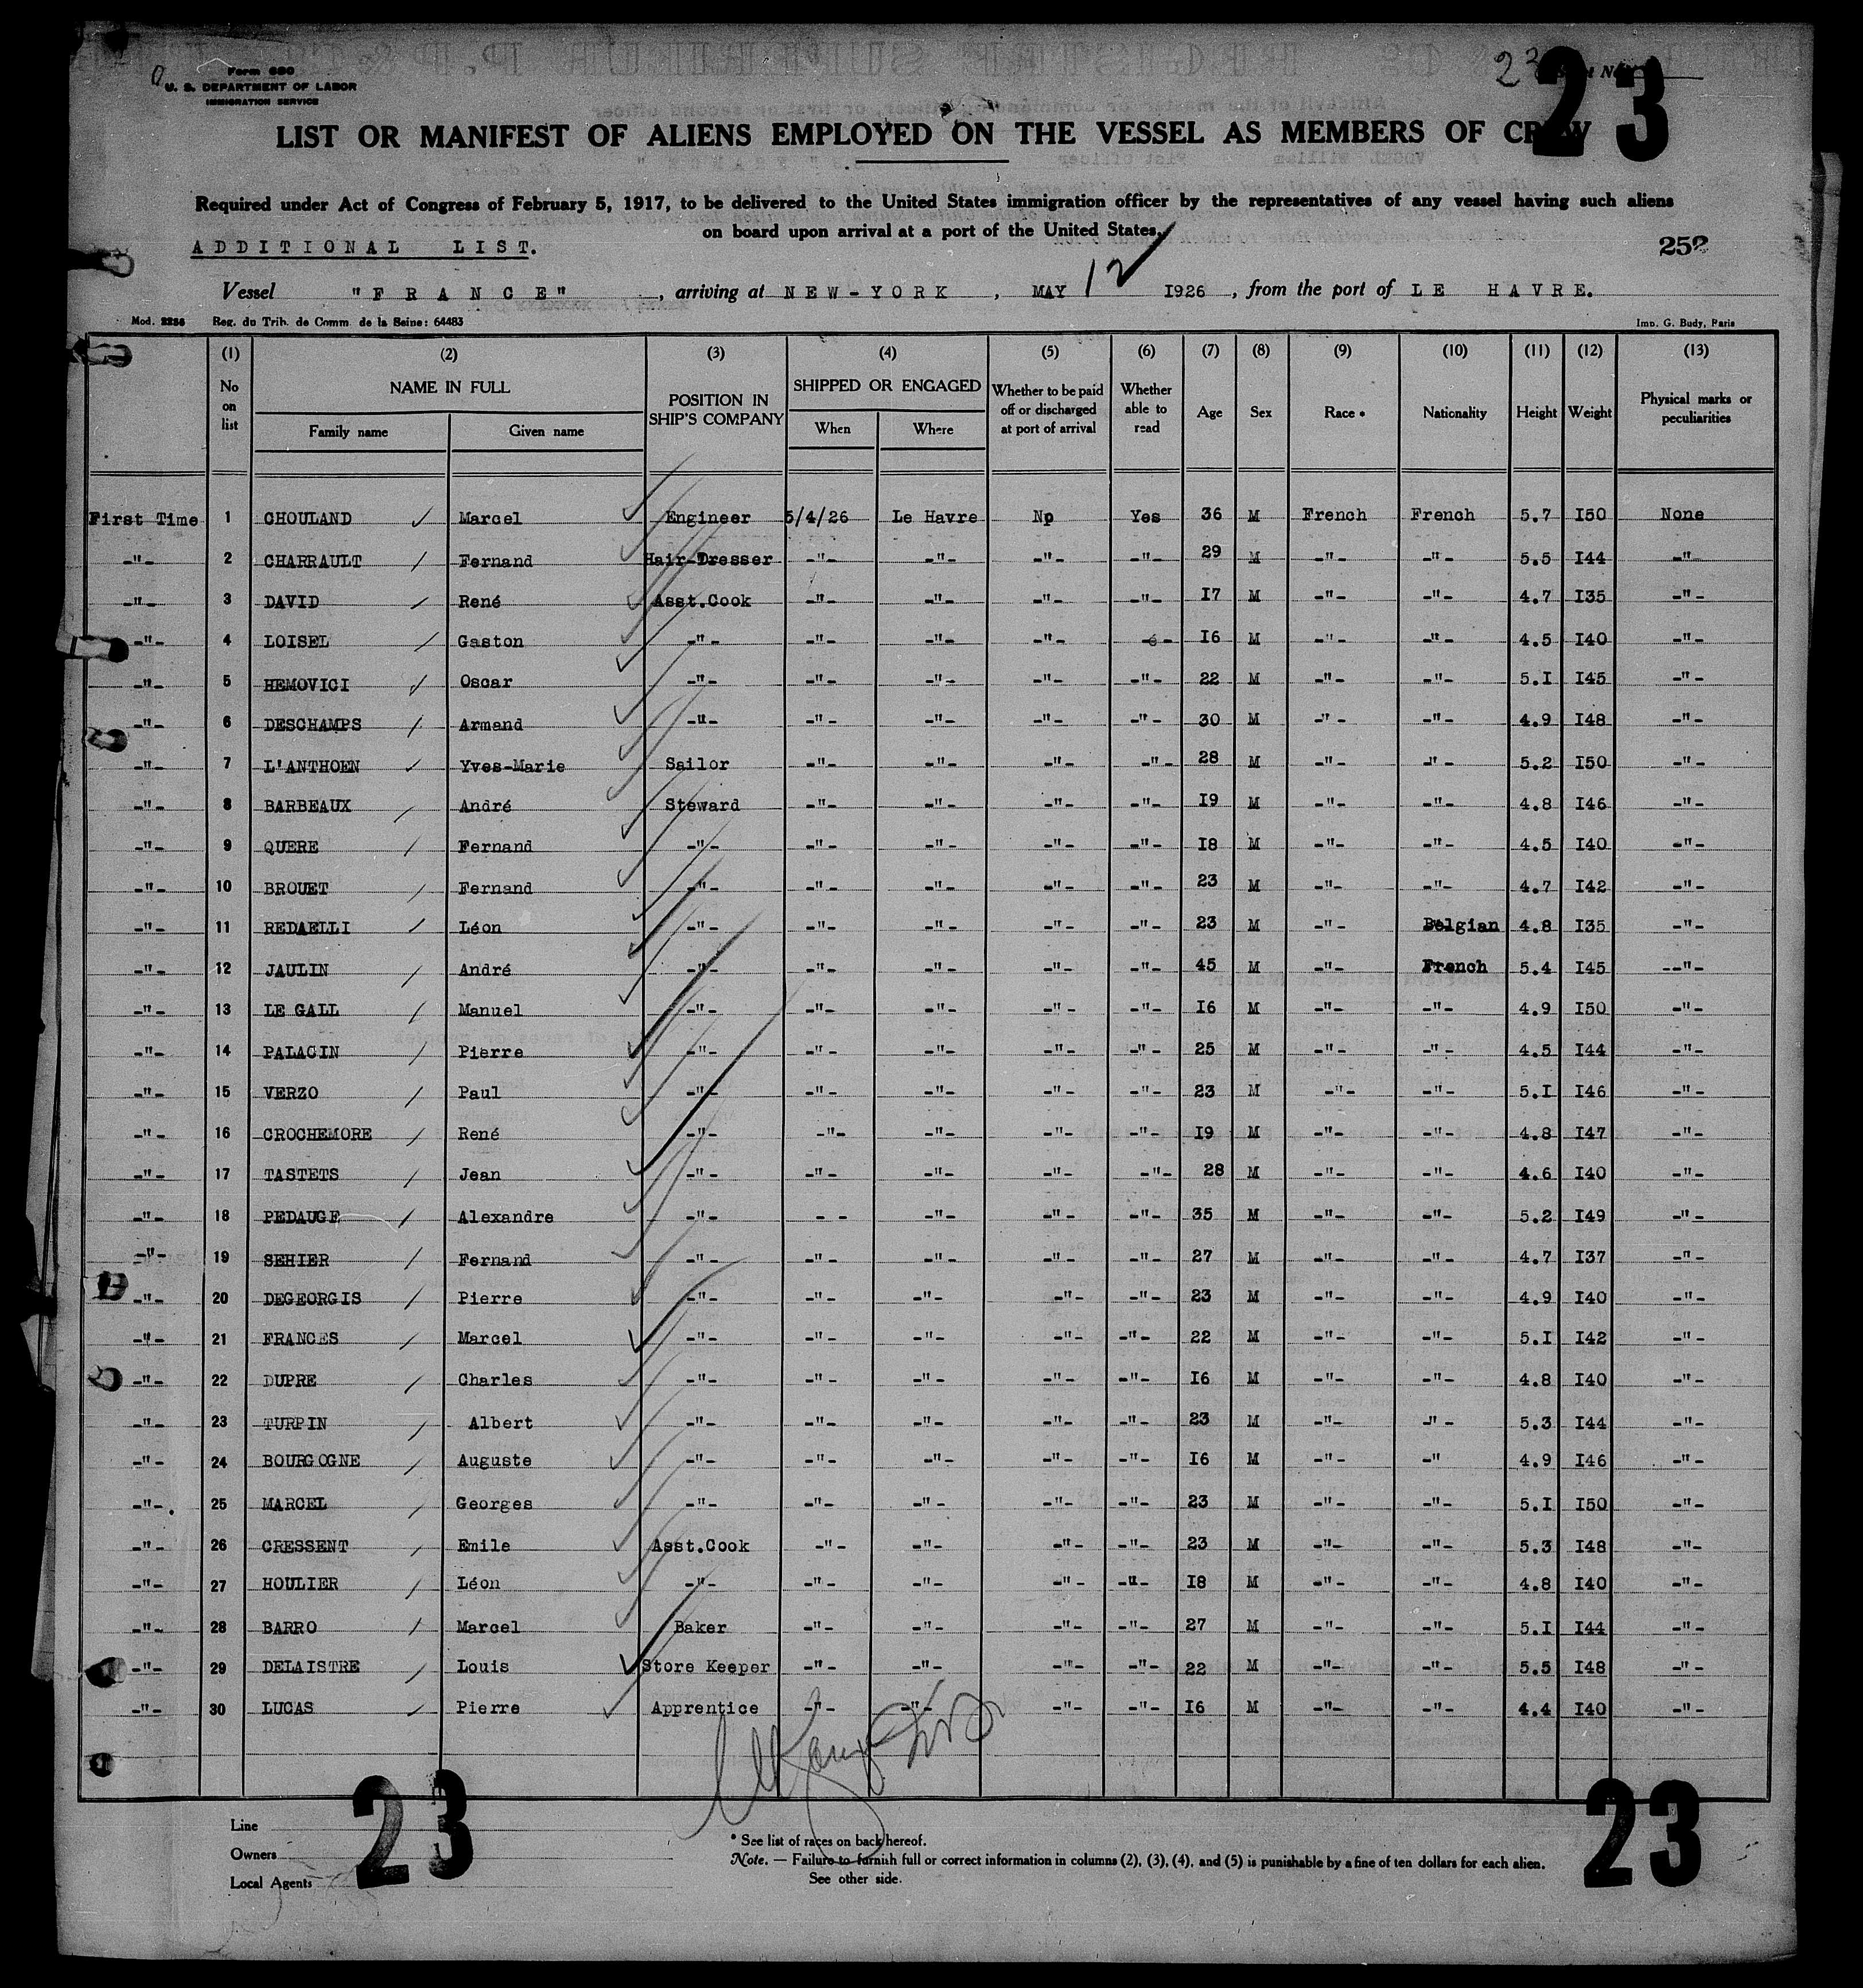 23
Form 680
U. S. DEPARTMENT OF LABOR
IMMIGRATION SERVICE
23
LIST OR MANIFEST OF ALIENS EMPLOYED ON THE VESSEL AS MEMBERS OF CREW
Required under Act of Congress of February 5, 1917, to be delivered to the United States immigration officer by the representatives of any vessel having such aliens
on board upon arrival at a port of the United States.
ADDITIONAL LIST.
252
Vessel "FRANCE", arriving at NEW-YORK, MAY 12 I926, from the port of LE HAVRE.
Mod. 2256 Reg. du Trib. de Comm. de la Seine: 64483 Imp. G. Budy, Paris
(1) (2) (3) (4) (5) (6) (7) (8) (9) (10) (11) (12) (13)
No on list NAME IN FULL POSITION IN SHIP'S COMPANY SHIPPED OR ENGAGED Whether to be paid off or discharged at port of arrival Whether able to read Age Sex Race * Nationality Height Weight Physical marks or peculiarities
Family name Given name When Where
First Time 1 CHOULAND Marcel Engineer 5/4/26 Le Havre No Yes 36 M French French 5.7 I50 None
-"- 2 CHARRAULT Fernand Hair-Dresser -"- -"- -"- -"- 29 M -"- -"- 5.5 I44 -"-
-"- 3 DAVID René Asst.Cook -"- -"- -"- -"- I7 M -"- -"- 4.7 I35 -"-
-"- 4 LOISEL Gaston -"- -"- -"- -"- -6- I6 M -"- -"- 4.5 I40 -"-
-"- 5 HEMOVICI Oscar -"- -"- -"- -"- -"- 22 M -"- -"- 5.I I45 -"-
-"- 6 DESCHAMPS Armand -"- -"- -"- -"- -"- 30 M -"- -"- 4.9 I48 -"-
-"- 7 L'ANTHOEN Yves-Marie Sailor -"- -"- -"- -"- 28 M -"- -"- 5.2 I50 -"-
-"- 8 BARBEAUX André Steward -"- -"- -"- -"- I9 M -"- -"- 4.8 I46 -"-
-"- 9 QUERE Fernand -"- -"- -"- -"- -"- I8 M -"- -"- 4.5 I40 -"-
-"- 10 BROUET Fernand -"- -"- -"- -"- -"- 23 M -"- -"- 4.7 I42 -"-
-"- 11 REDAELLI Léon -"- -"- -"- -"- -"- 23 M -"- Belgian 4.8 I35 -"-
-"- 12 JAULIN André -"- -"- -"- -"- -"- 45 M -"- French 5.4 I45 --"-
-"- 13 LE GALL Manuel -"- -"- -"- -"- -"- I6 M -"- -"- 4.9 I50 -"-
-"- 14 PALACIN Pierre -"- -"- -"- -"- -"- 25 M -"- -"- 4.5 I44 -"-
-"- 15 VERZO Paul -"- -"- -"- -"- -"- 23 M -"- -"- 5.I I46 -"-
-"- 16 CROCHEMORE René -"- -"- -"- -"- -"- I9 M -"- -"- 4.8 I47 -"-
-"- 17 TASTETS Jean -"- -"- -"- -"- -"- 28 M -"- -"- 4.6 I40 -"-
-"- 18 PEDAUGE Alexandre -"- - - -"- -"- -"- 35 M -"- -"- 5.2 I49 -"-
-"- 19 SEHIER Fernand -"- -"- -"- -"- -"- 27 M -"- -"- 4.7 I37 -"-
-"- 20 DEGEORGIS Pierre -"- -"- -"- -"- -"- 23 M -"- -"- 4.9 I40 -"-
-"- 21 FRANCES Marcel -"- -"- -"- -"- -"- 22 M -"- -"- 5.I I42 -"-
-"- 22 DUPRE Charles -"- -"- -"- -"- -"- I6 M -"- -"- 4.8 I40 -"-
-"- 23 TURPIN Albert -"- -"- -"- -"- -"- 23 M -"- -"- 5.3 I44 -"-
-"- 24 BOURGOGNE Auguste -"- -"- -"- -"- -"- I6 M -"- -" 4.9 I46 -"-
-"-. 25 MARCEL Georges -"- -"- -"- -"- -"- 23 M -"- -"- 5.I I50 -"-
-"- 26 CRESSENT Emile Asst.Cook -"- -"- -"- -"- 23 M -"- -"- 5.3 I48 -"-
-"- 27 HOULIER Léon -"- -"- -"- -"- -"- I8 M -"- -"- 4.8 I40 -"-
-"- 28 BARRO Marcel Baker -"- -"- -"- -"- 27 M -"- -"- 5.I I44 -"-
-"- 29 DELAISTRE Louis Store Keeper -"- -"- -"- -"- 22 M -"- -"- 5.5 I48 -"-
-"- 30 LUCAS Pierre Apprentice -"- -"- -"- -"- I6 M -"- -"- 4.4 I40 -"-
23
23
Line
Owners
Local Agents
* See list of races on back hereof.
Note. — Failure to furnish full or correct information in columns (2), (3), (4), and (5) is punishable by a fine of ten dollars for each alien.
See other side.